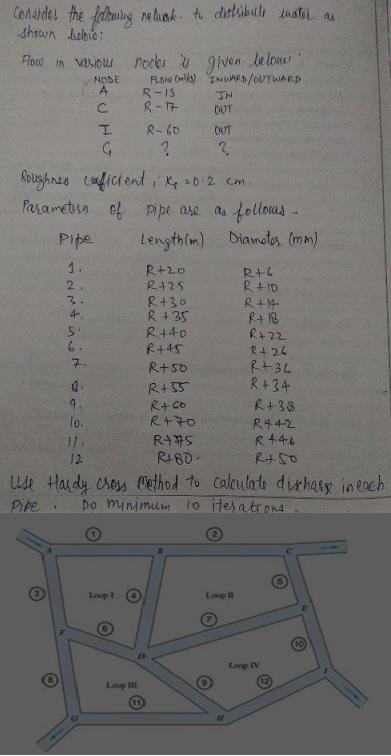 Consider the following network to distribute water as
shown below:
Flow in various nodes is given below:
NODE FLOW (m³/s) INWARD/OUTWARD
A R-13 IN
C R-17 OUT
I R-60 OUT
G ? ?
Roughness coefficient, Ks = 0.2 cm.
Parameters of pipe are as follows -
Pipe Length (m) Diameter (mm)
1. R+20 R+6
2. R+25 R+10
3. R+30 R+14
4. R+35 R+18
5. R+40 R+22
6. R+45 R+26
7. R+50 R+32
8. R+55 R+34
9. R+60 R+38
10. R+70 R+42
11. R+75 R+46
12 R+80. R+50
Use Hardy cross Method to calculate discharge in each
pipe. Do minimum 10 iterations.
1 2
A B C
3 Loop I 4 Loop II 5
7 E
F 6
D 10
8 Loop IV
Loop III 9 12 I
11
G H